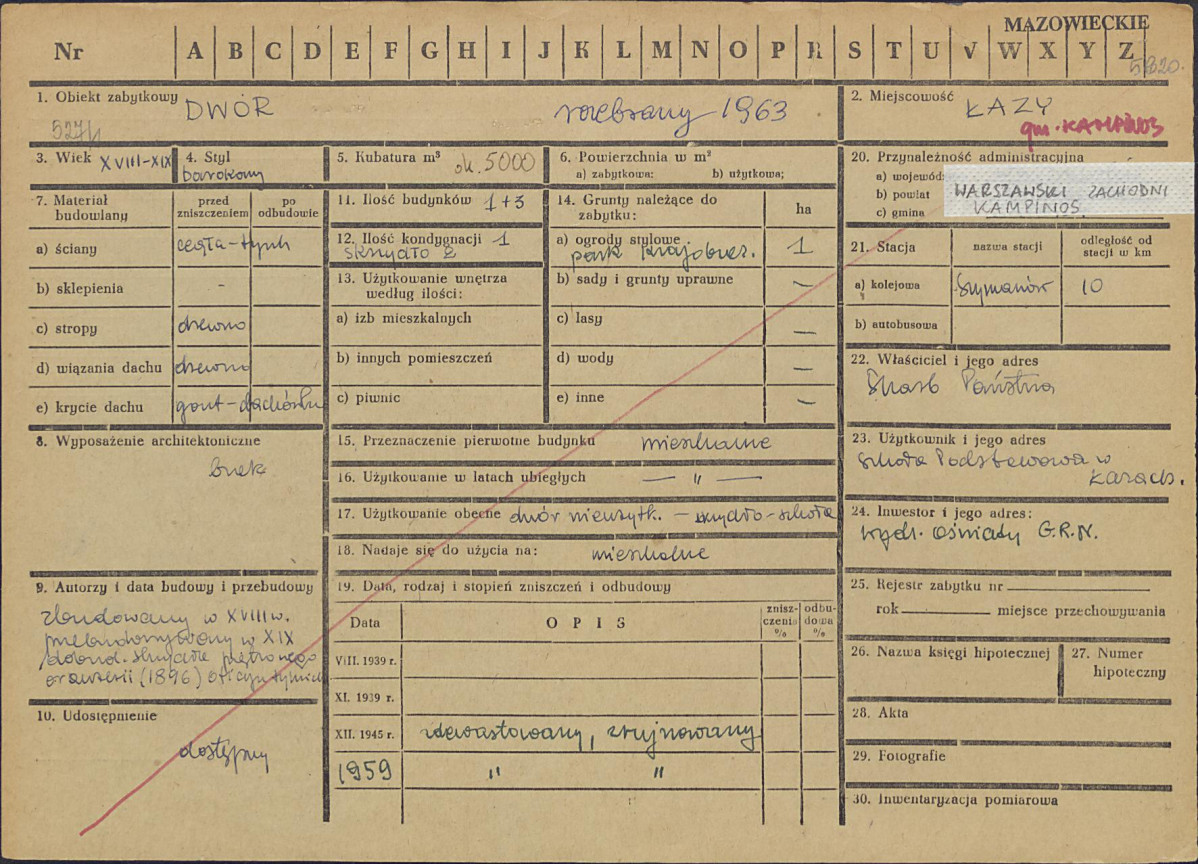 MAZOWIECKIE
Nr A B C D E F G H I J K L M N O P R S T U V W X Y Z
5820.
1. Obiekt zabytkowy DWÓR rozebrany 1963
5274
2. Miejscowość ŁAZY
gm. KAMPINOS
3. Wiek XVIII-XIX
4. Styl
barokowy
5. Kubatura m³ ok. 5000
6. Powierzchnia w m²
a) zabytkowa: b) użytkowa;
7. Materiał budowlany
przed zniszczeniem
po odbudowie
a) ściany cegła-tynk
b) sklepienia -
c) stropy drewno
d) wiązania dachu drewno
e) krycie dachu gont-dachówka
8. Wyposażenie architektoniczne
brak
9. Autorzy i data budowy i przebudowy
zbudowany w XVIII w.
w XIX
dobud. skrzydło piętrowego
(1896)
10. Udostępnienie
dostępny
11. Ilość budynków 1+3
12. Ilość kondygnacji 1
skrzydło 2
13. Użytkowanie wnętrza
według ilości:
a) izb mieszkalnych
b) innych pomieszczeń
c) piwnic
14. Grunty należące do
zabytku: ha
a) ogrody stylowe
park krajobraz. 1
b) sady i grunty uprawne —
c) lasy —
d) wody —
e) inne —
15. Przeznaczenie pierwotne budynku mieszkalne
16. Użytkowanie w latach ubiegłych — " —
17. Użytkowanie obecne dwór nieużytk. — skrzydło-szkoła
18. Nadaje się do użycia na: mieszkalne
19. Data, rodzaj i stopień zniszczeń i odbudowy
Data OPIS zniszczenia % odbudowa %
VIII. 1939 r.
XI. 1939 r.
XII. 1945 r. zdewastowany, zrujnowany
1959 " "
20. Przynależność administracyjna
a) wojewód
b) powiat WARSZAWSKI ZACHODNI
c) gmina KAMPINOS
21. Stacja nazwa stacji odległość od
stacji w km
a) kolejowa Szymanów 10
b) autobusowa
22. Właściciel i jego adres
Skarb Państwa
23. Użytkownik i jego adres
Szkoła Podstawowa w
Łazach.
24. Inwestor i jego adres:
Wydz. Oświaty G.R.N.
25. Rejestr zabytku nr
rok miejsce przechowywania
26. Nazwa księgi hipotecznej
27. Numer
hipoteczny
28. Akta
29. Fotografie
30. Inwentaryzacja pomiarowa